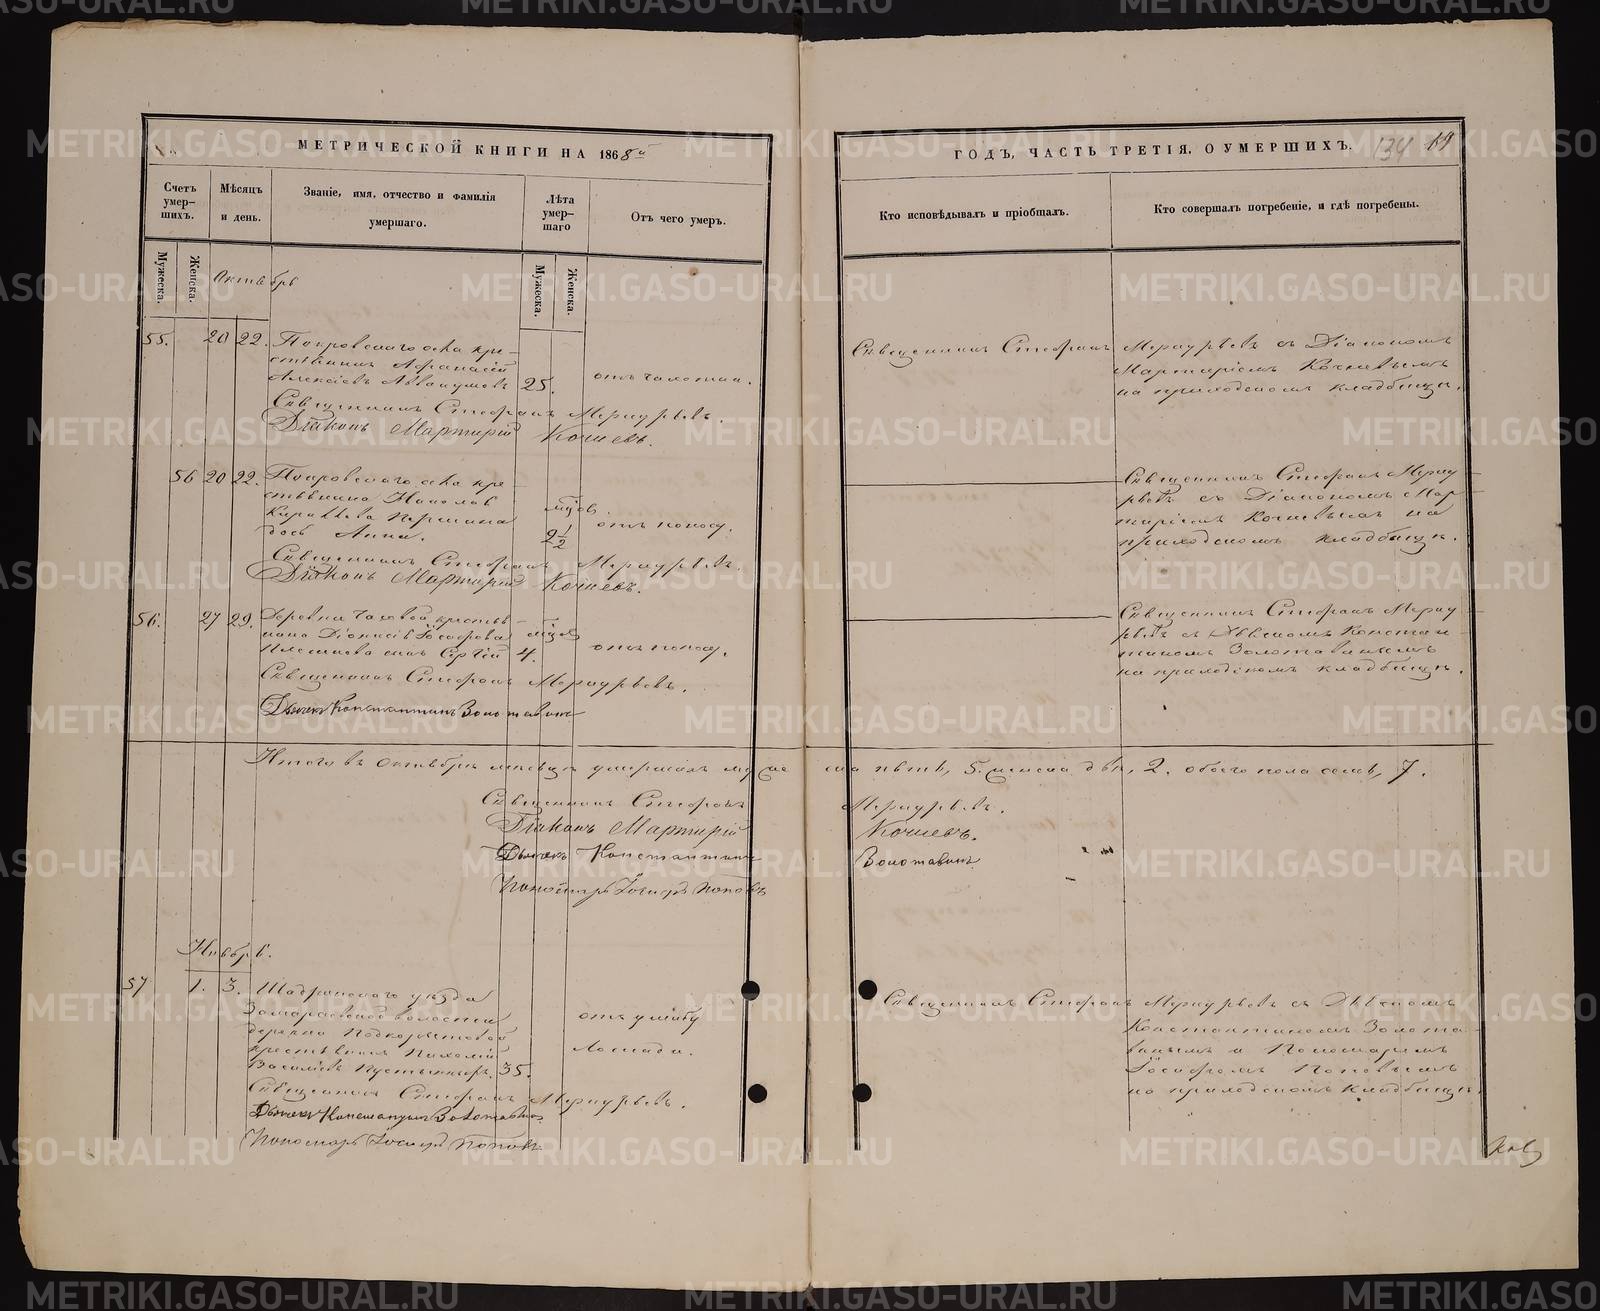 МЕТРИЧЕСКОЙ КНИГИ НА 1868й
ГОДЪ, ЧАСТЬ ТРЕТІЯ, О УМЕРШИХЪ.
134 19
Счетъ умер-шихъ.
Мѣсяцъ и день.
Званіе, имя, отчество и фамилія умершаго.
Лѣта умер-шаго
Отъ чего умеръ.
Кто исповѣдывалъ и пріобщалъ.
Кто совершалъ погребеніе, и гдѣ погребены.
Мужеска.
Женска.
Мужеска.
Женска.
Октябрь
55. 20 22. Покровскаго села кре-
стьянинъ Афанасій
Алексѣевъ Аввакумовъ 25. отъ чахотки.
Священникъ Стефанъ Меркурьевъ съ Діакономъ
Мартиріемъ Кочневымъ
на приходскомъ кладбищѣ.
Священникъ Стефанъ Меркурьевъ.
Діаконъ Мартирій Кочневъ.
56 20 22. Покровскаго села кре-
стьянина
дочь Анна.
мѣсѣ. 2½ отъ поносу.
Священникъ Стефанъ Мерку-
рьевъ съ Діакономъ Мар-
тиріемъ Кочневымъ на
приходскомъ кладбищѣ.
Священникъ Стефанъ Меркурьевъ.
Діаконъ Мартирій Кочневъ.
56. 27 29. Деревни Чаховой крестья-
нина Діонисія Іосифова
сынъ Сергій 4. отъ поносу.
Священникъ Стефанъ Мерку-
рьевъ съ Дьячкомъ Констан-
тиномъ Золотавинымъ
на приходскомъ кладбищѣ.
Священникъ Стефанъ Меркурьевъ.
Дьячекъ Константинъ Золотавинъ
Итого въ октябрѣ мѣсяцѣ умершихъ муже ска пять, 5. женска двѣ, 2. обоего пола семь, 7.
Священникъ Стефанъ Меркурьевъ.
Діаконъ Мартирій Кочневъ.
Дьячекъ Константинъ Золотавинъ
Пономарь Іосифъ Поповъ
Ноябрь.
57 1. 3. Шадринскаго уѣзда
волости
деревни Подкорытовой
крестьянинъ
35. отъ ушибу
лошади.
Священникъ Стефанъ Меркурьевъ съ Дьячкомъ
Константиномъ Золота-
винымъ и Пономаремъ
Іосифомъ Поповымъ
на приходскомъ кладбищѣ.
Священникъ Стефанъ Меркурьевъ.
Дьячекъ Константинъ Золотавинъ
Пономарь Іосифъ Поповъ
METRIKI.GASO-URAL.RU